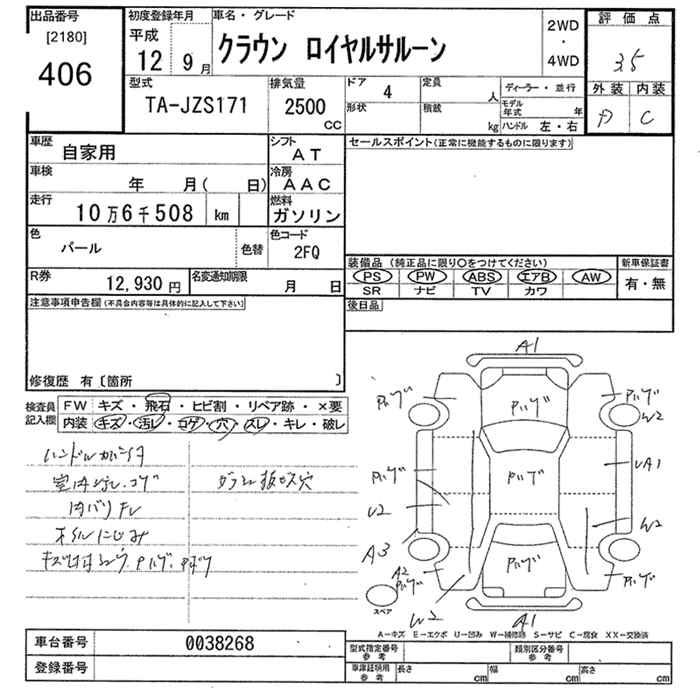 出品番号
[2180]
406
初度登録年月
平成
12 9 月
車名・グレード
クラウン ロイヤルサルーン
2WD
・
4WD
評価点
3.5
外装 内装
D C
型式
TA-JZS171
排気量
2500
CC
ドア
4
形状
定員
人
積載
kg
ディーラー・並行
モデル年式 年
ハンドル 左・右
車歴
自家用
シフト
AT
車検
年 月( 日)
冷房
AAC
走行
10万6千508 km
燃料
ガソリン
色
パール
色替
色コード
2FQ
R券
12,930 円
名変通知期限
月 日
セールスポイント(正常に機能するものに限ります)
装備品 (純正品に限り○をつけてください)
PS PW ABS エアB AW
SR ナビ TV カワ
新車保証書
有・無
後日品
注意事項申告欄(不具合内容等は具体的に記入して下さい)
修復歴 有〔箇所 〕
検査員記入欄
FW キズ・飛石・ヒビ割・リペア跡・×要
内装 キズ・汚レ・コゲ・穴・スレ・キレ・破レ
室内汚レ.コゲ
内バリ
オイルにじみ
A1
Pハゲ
Pハゲ
Pハゲ
W2
Pハゲ
Pハゲ
UA1
U2
W2
A3
A2
Pハゲ
Pハゲ
Pハゲ
スペア
W2
A1
A－キズ E－エクボ U－凹み W－補修跡 S－サビ C－腐食 XX－交換済
車台番号
0038268
登録番号
型式指定番号
参考
類別区分番号
参考
車庫証明用
参考
長さ cm
幅 cm
高さ cm